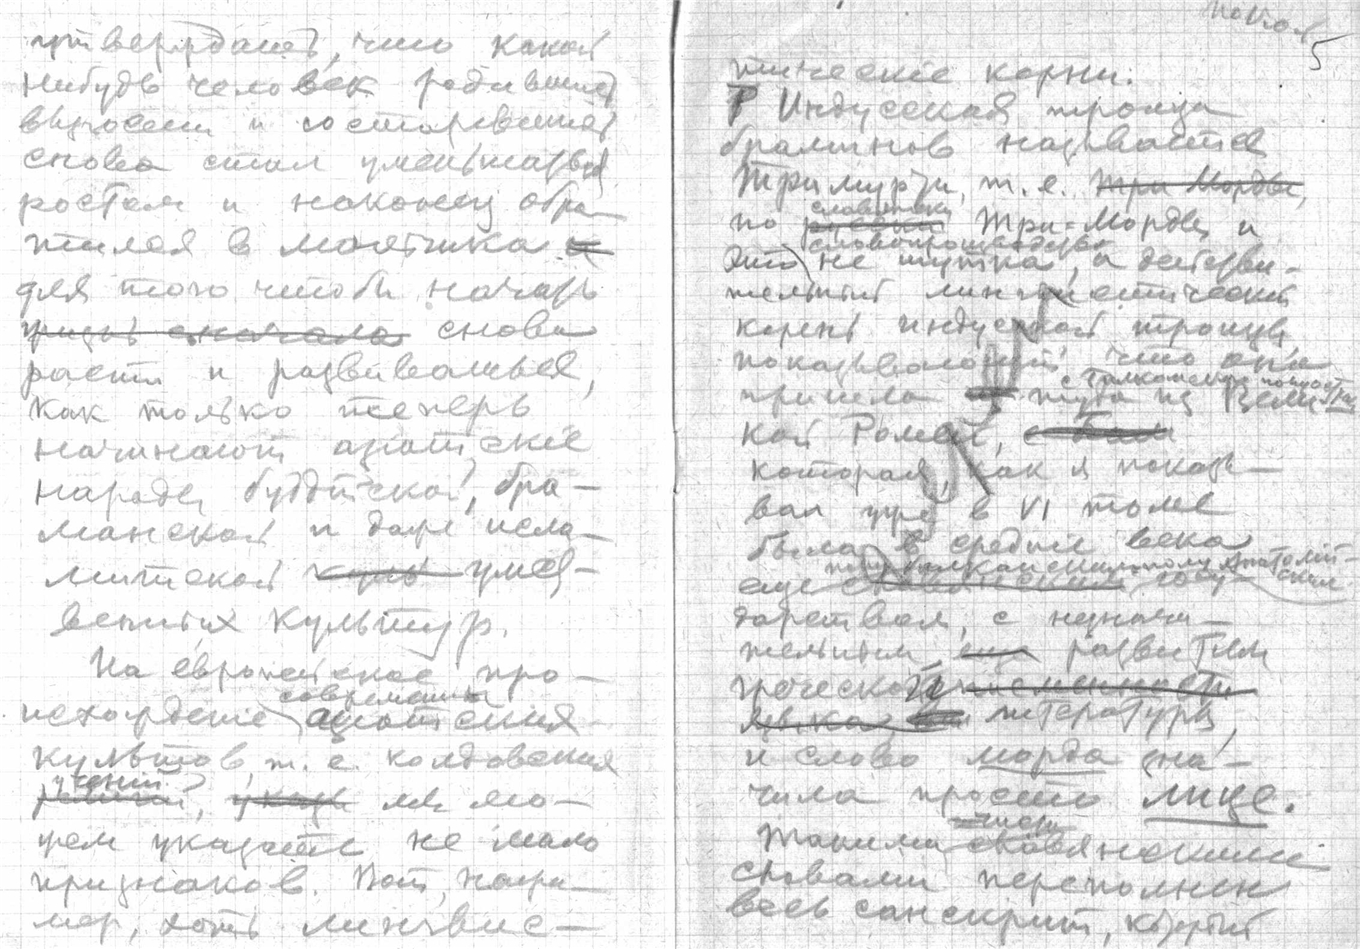 утверждает, что какой
нибудь человек родившись
выросши и состаревшись
снова стал уменьшаться
ростом и наконец обра-
тился в мальчика
для того чтобы начать
жизнь сначала снова
расти и развиваться,
как только теперь
начинают азиатскіе
народы буддійской, бра-
манской и даже исла-
митской умст-
венных культур.
На европейское про-
исхождение современных азиатских
культов, т. е. колдовских
учений, мы мо-
жем указать не мало
признаков. Вот, напри-
мер, хоть лингвис-
5
тическіе корни.
Индусская троица
браминов называется
Тримурти, т. е. Три Морды,
по славянски Три-Морды и
словопроизводство
это не шутка, а действи-
тельный лингвистический
корень индусской троицы,
показывающий что она
пришла туда из Вели-
кой Ромеи,
которая, как я показы-
вал уже в VI томе
была в средние века
еще госу-
дарством, с незначи-
тельным еще развитием
греческой письменности
языка литературы,
и слово морда зна-
чило просто лице.
Такими чисто славянскими
словами переполнен
весь санскрит, который